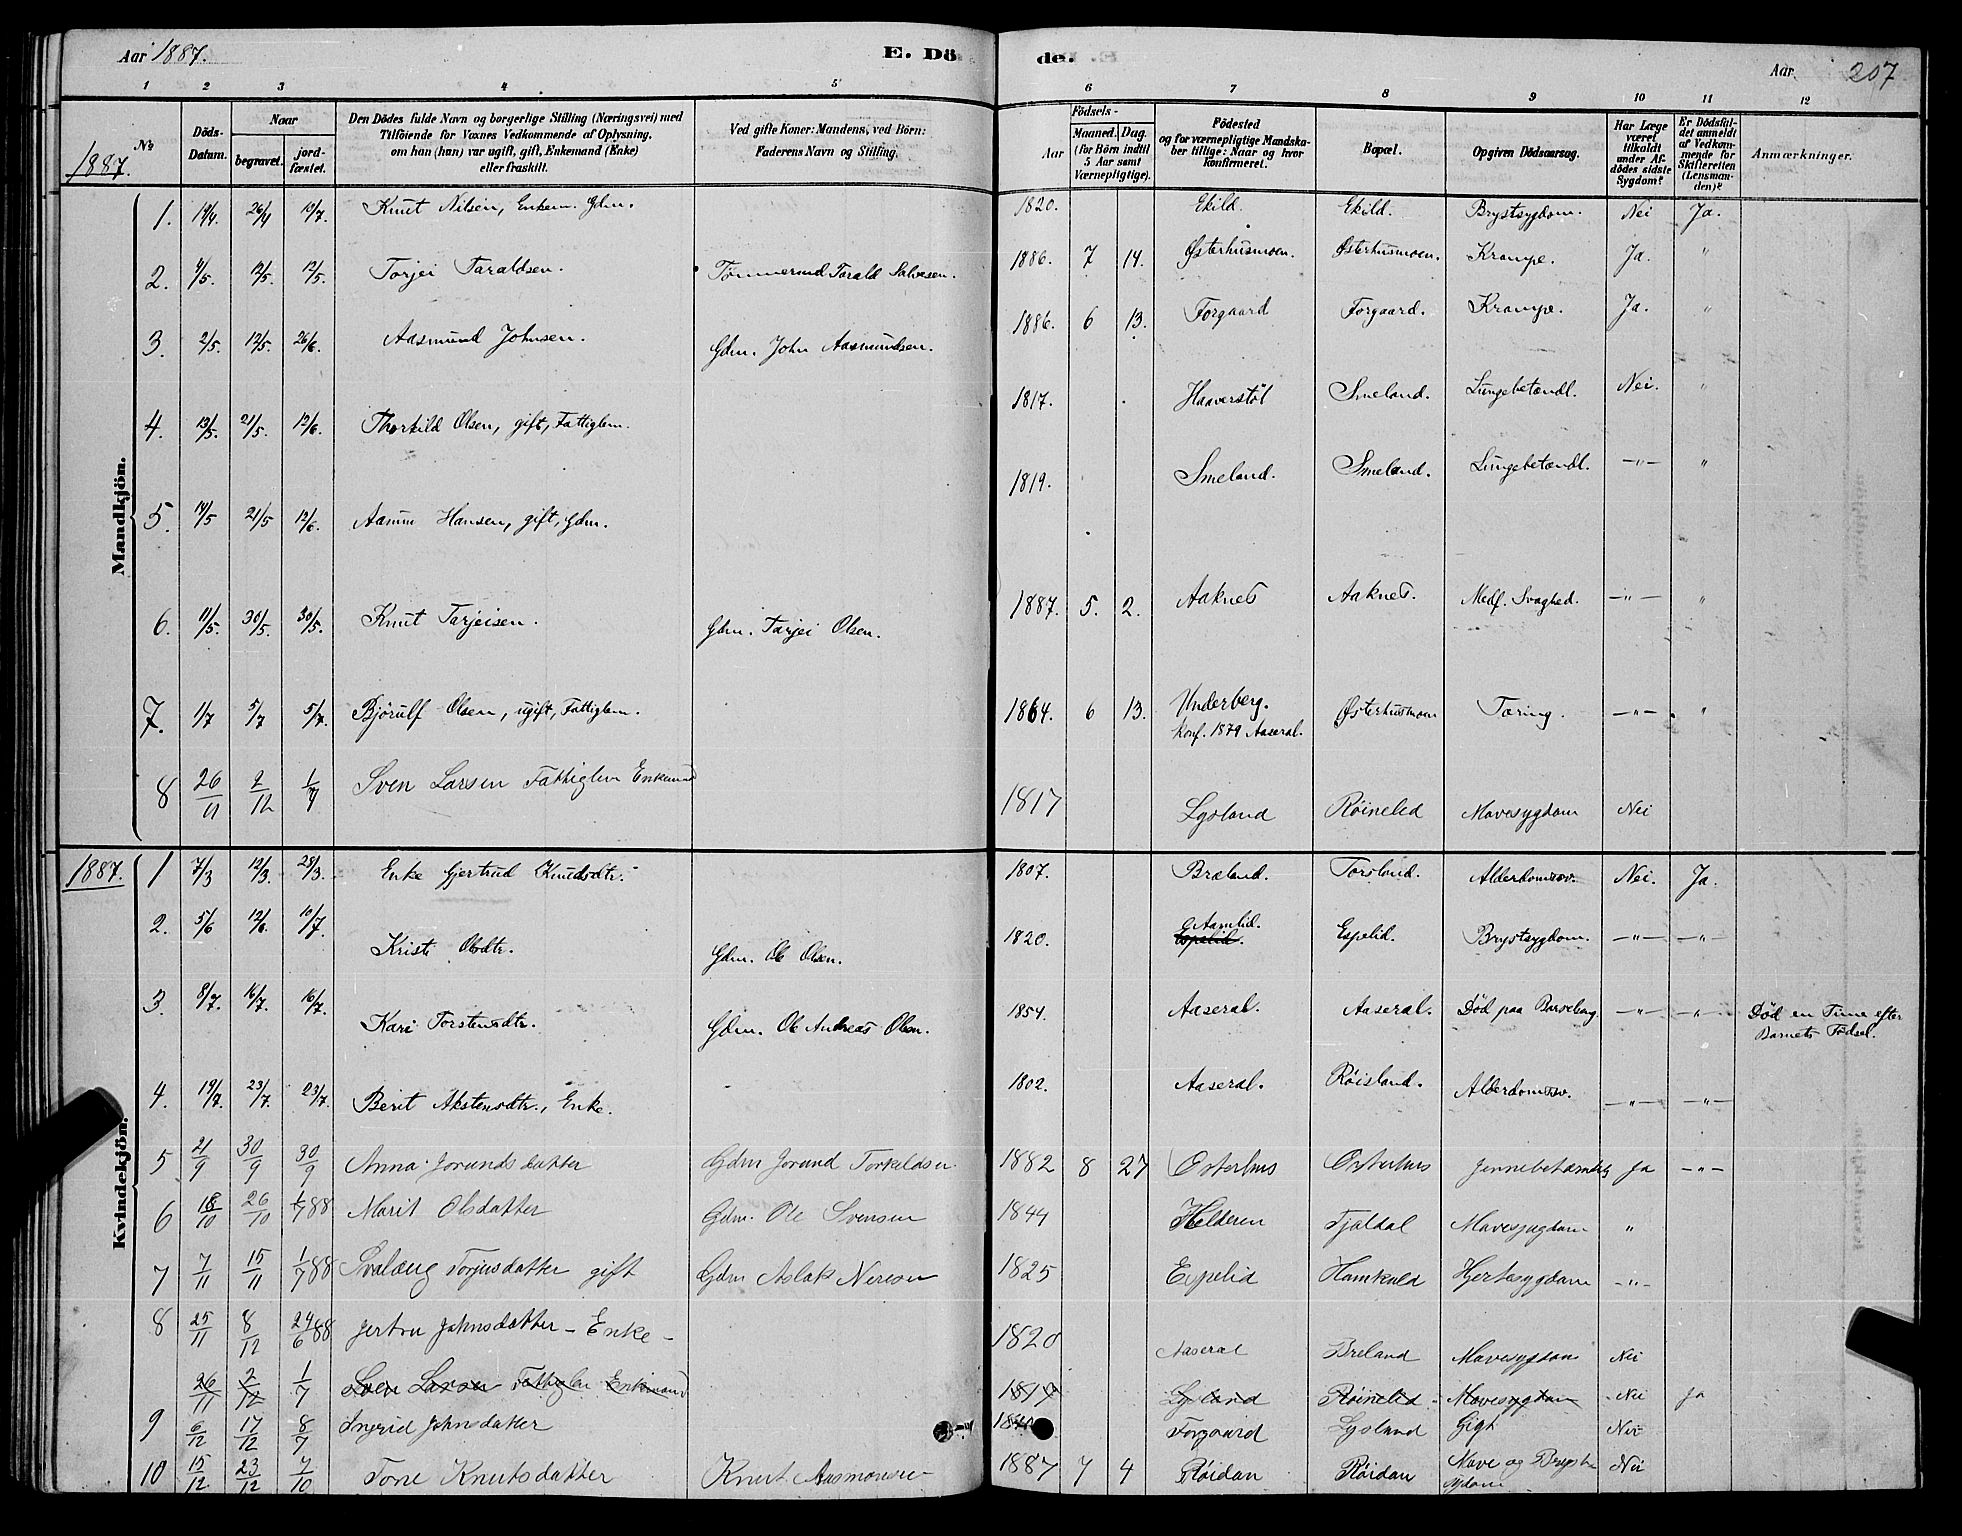 Aar 1887. E. Dö de. Aar 207
1 2 3 4 5 6 7 8 9 10 11 12
1887.
No
Döds-Datum.
Naar
begravet.
jord-fæstet.
Den Dödes fulde Navn og borgerlige Stilling (Næringsvei) med
Tilföiende for Voxnes Vedkommende af Oplysning,
om han (hun) var ugift, gift, Enkemand (Enke)
eller fraskilt.
Ved gifte Koner: Mandens, ved Börn:
Faderens Navn og Stilling.
Födsels-
Aar
Maaned. Dag.
(for Börn indtil
5 Aar samt
Værnepligtige).
Födested
og for værnepligtige Mandska-
ber tillige: Naar og hvor
konfirmeret.
Bopæl.
Opgiven Dödsaarsag.
Har Læge
været
tilkaldt
under Af-
dödes sidste
Sygdom?
Er Dödsfal-
det anmeldt
af Vedkom-
mende for
Skifteretten
(Lensman-
den)?
Anmærkninger.
Mandkjön.
1. 19/4 26/4 10/7. Knut Nilsen, Enkem. Gdm. 1820. Ekild. Ekild. Brystsygdom. Nei Ja.
2. 4/5. 12/5. 12/5. Torjei Taraldsen. Tømmermd Tarald Salvesen. 1886. 7 14. Østerhusmoen. Østerhusmoen. Krampe. Ja. "
3. 2/5. 12/5. 26/6. Aasmund Johnsen. Gdm. John Aasmundsen. 1886. 6 13. Forgaard Forgaard. Krampe. Ja. "
4. 13/5. 21/5. 12/6. Thorkild Olsen, gift, Fattiglem. 1817. Haaverstöl Smeland. Lungebetændl. Nei. "
5. 14/5 21/5 12/6. Aanun Hansen, gift, Gdm. 1819. Smeland. Smeland. Lungebetændl. -"- "
6. 11/5. 30/5. 30/5. Knut Tarjeisen. Gdm. Tarjei Olsen. 1887. 5. 2. Aaknes Aaknes. Medf. Svaghed. -"- "
7. 1/7 5/7 5/7. Bjørulf Olsen, ugift, Fattiglem. 1864. 6 13. Underberg. Østerhusmoen Tæring. -"- "
konf. 1879 Aaseral.
8 26/11 2/12 1/7 Sven Larsen Fattiglem Enkemand 1817 Lysland Röinelid Mavesygdom Nei
1887.
Kvindekjön.
1 7/3 12/3. 28/3. Enke Gjertrud Knudsdtr. 1807. Bræland. Torsland. Alderdomssv. Nei. Ja.
2. 5/6 12/6. 10/7. Kristi Olsdtr. Gdm. Ole Olsen. 1820. Aamlid. Espelid. Brystsygdom. -"- -"-
Espelid.
3. 8/7. 16/7. 16/7. Kari Torstensdtr. Gdm. Ole Andreas Olsen. 1854. Aaseral. Aaseral. Död paa Barselseng. -"- -"- Död en Time efter
Barnets Fødsel.
4. 19/7. 23/7. 23/7. Berit Akstensdtr., Enke. 1802. Aaseral. Röisland. Alderdomssv. -"- -"-
5 21/9 30/9 30/9 Anna Jorundsdatter Gdm Jorund Torkeldsen 1882 8 27 Österhus Österhus Ja -"-
6 18/10 26/10 1/7 88 Marit Olsdatter Gdm. Ole Svensen 1844 Helderen Fjaldal Mavesygdom "
7 7/11 15/11 1/7 88 Svalaug Torjusdatter gift Gdm Aslak Nereson 1825 Espelid Hamkald Hjertesygdom -"-
8 25/11 8/12 24/6 88 Jertru Johnsdatter - Enke - 1820 Aaseral Breland Mavesygdom Nei
26/11 2/12 1/7 Sven Larsen Fattiglem Enkemand 1817 Lysland Röinelid - Mavesygdom - Nei Ja
9 6/12 17/12 8/7 Ingrid Johnsdatter Forgaard Lysland Gigt Nei
10 15/12 23/12 7/10 Tone Knutsdatter Knut Aasmonsen 1887 7 4 Röidan Röidan Mave og Bryst Nei
sygdom